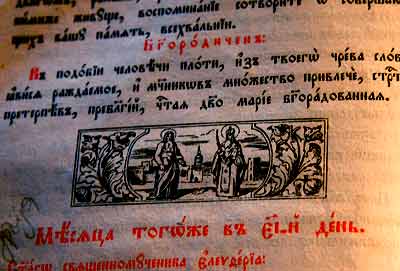 живꙋще, воспоминанїе сотвори́те ѡ҆ соверша́ю
вашꙋ па́мѧть, всехва́льнїи.
Бг҃оро́диченъ:
Въ подо́бїи человѣ́чи пло́ти, и҆з̾ твоегѡ̀ чре́ва сло́в
ꙗ҆ви́сѧ ражда́емое, и҆ мч҃никѡвъ мно́жество привлечѐ, стрⷭ҇
претерпѣ́въ, пребл҃гі́й, чⷭ҇таѧ дв҃о марі́е бг҃ора́дованнаѧ.
Мцⷭ҇а тогѡ́же въ є҃і-й де́нь.
свѧще́нномꙋченика є҆леѵѳе́рїа: